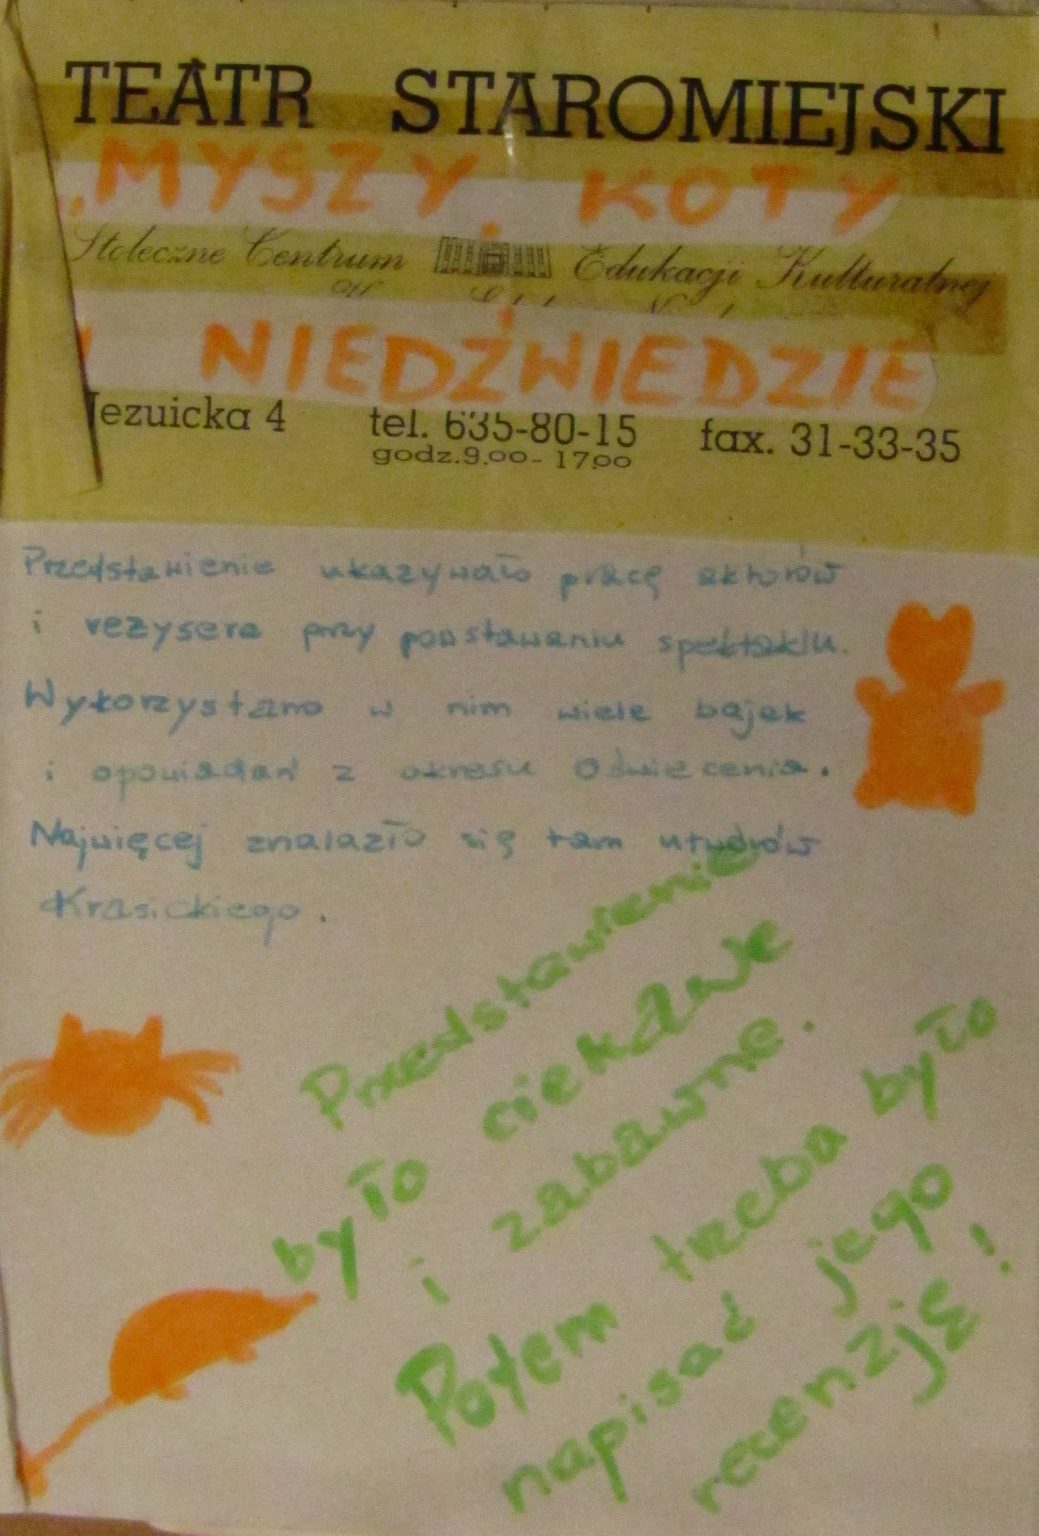 TEATR STAROMIEJSKI
„MYSZY, KOTY
Stołeczne Centrum Edukacji Kulturalnej
I NIEDŹWIEDZIE
Jezuicka 4 tel. 635-80-15 fax. 31-33-35
godz.9.00 - 17.00
Przedstawienie ukazywało pracę aktorów
i reżysera przy powstawaniu spektaklu.
Wykorzystano w nim wiele bajek
i opowiadań z okresu Oświecenia.
Najwięcej znalazło się tam utworów
Krasickiego.
Przedstawienie
było ciekawe
i zabawne.
Potem trzeba było
napisać jego
recenzję!